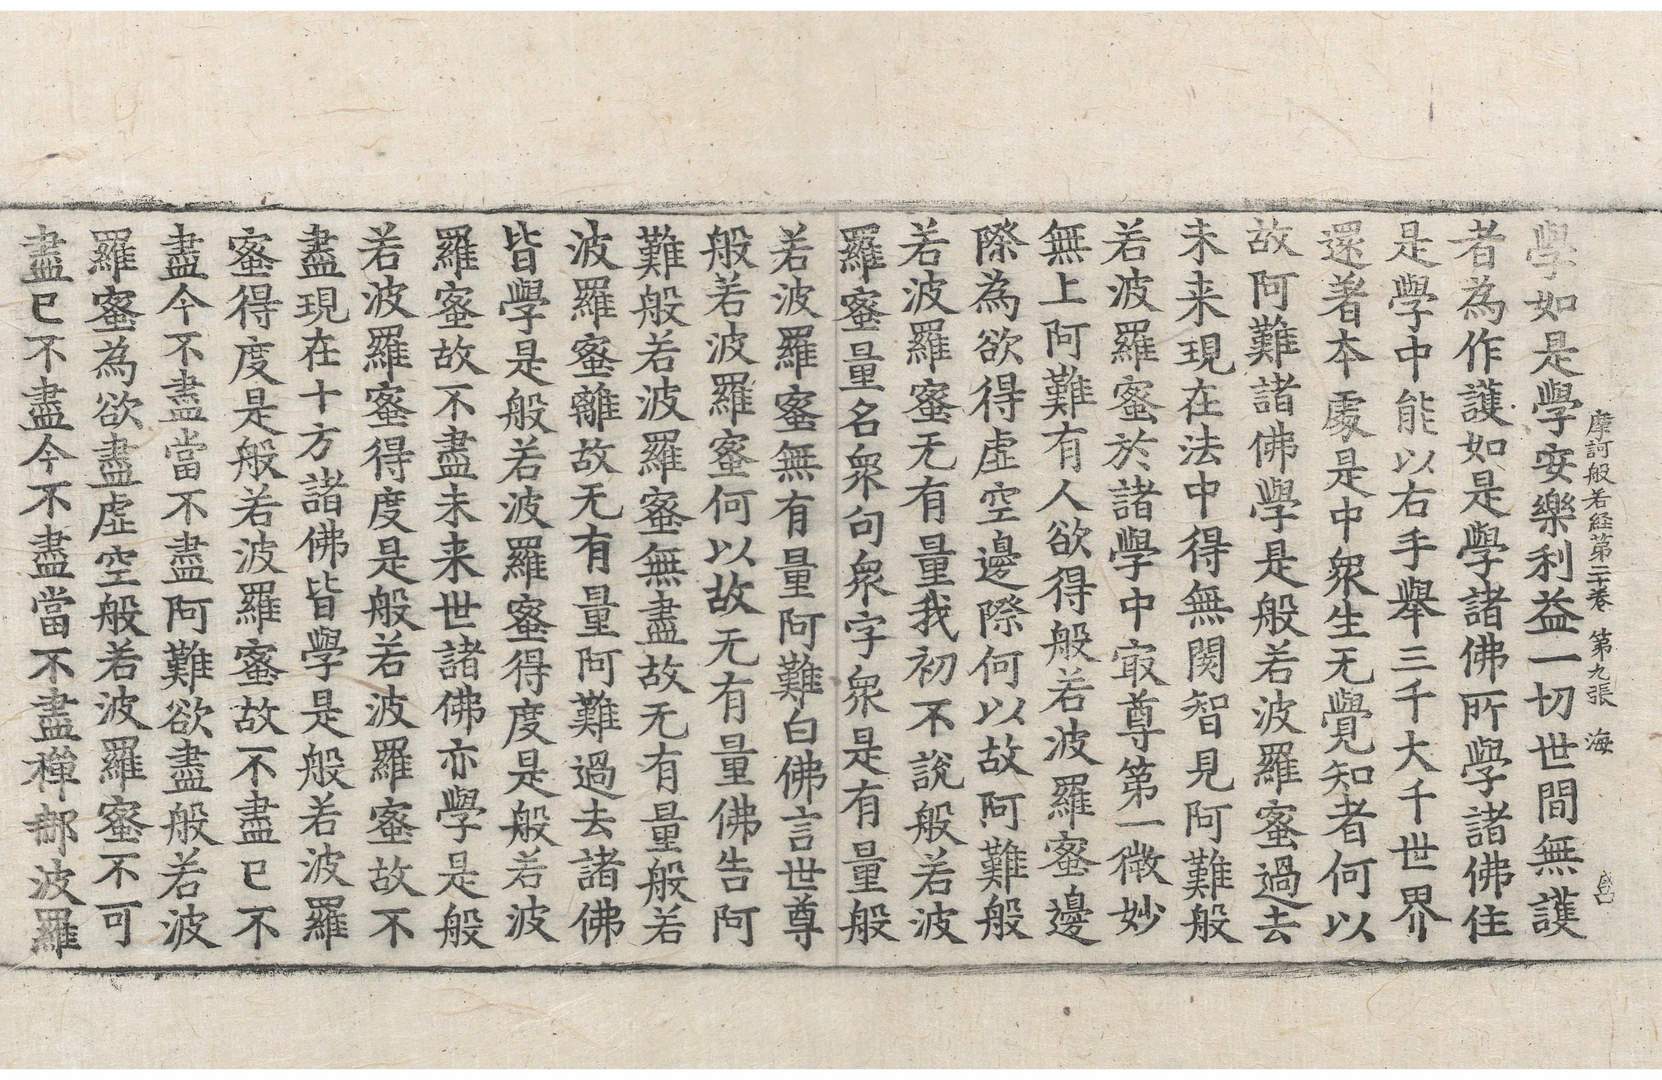 摩訶般若経第二十卷　第九張　海
學如是學安樂利益一切世間無護
者為作護如是學諸佛所學諸佛住
是學中能以右手舉三千大千世界
還著本處是中衆生无覺知者何以
故阿難諸佛學是般若波羅蜜過去
未来現在法中得無閡智見阿難般
若波羅蜜於諸學中㝡尊第一微妙
無上阿難有人欲得般若波羅蜜邊
際為欲得虛空邊際何以故阿難般
若波羅蜜无有量我初不說般若波
羅蜜量名衆句衆字衆是有量般
若波羅蜜無有量阿難白佛言世尊
般若波羅蜜何以故无有量佛告阿
難般若波羅蜜無盡故无有量般若
波羅蜜離故无有量阿難過去諸佛
皆學是般若波羅蜜得度是般若波
羅蜜故不盡未来世諸佛亦學是般
若波羅蜜得度是般若波羅蜜故不
盡現在十方諸佛皆學是般若波羅
蜜得度是般若波羅蜜故不盡已不
盡今不盡當不盡阿難欲盡般若波
羅蜜為欲盡虛空般若波羅蜜不可
盡已不盡今不盡當不盡禪那波羅